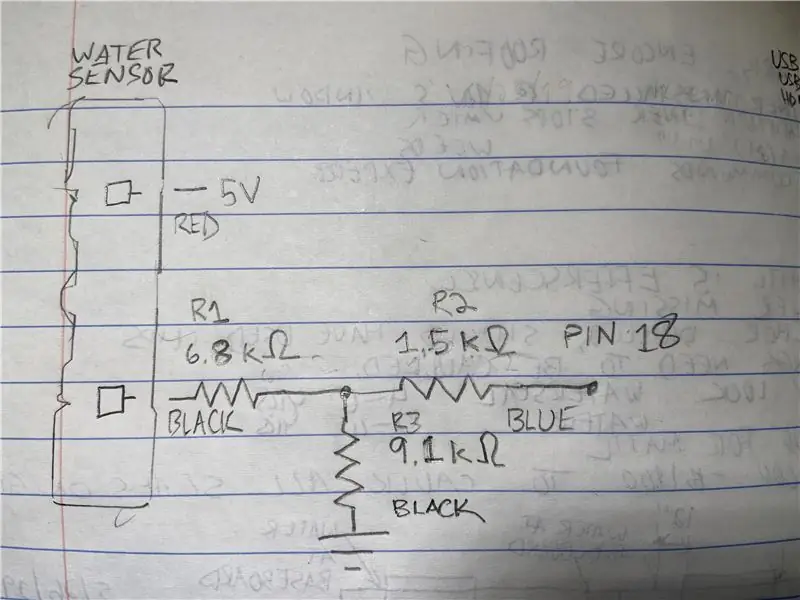 WATER
SENSOR
5V
RED
R1
6.8 kΩ
R2
1.5 kΩ
PIN 18
BLACK
R3
9.1 kΩ
BLUE
BLACK
USB